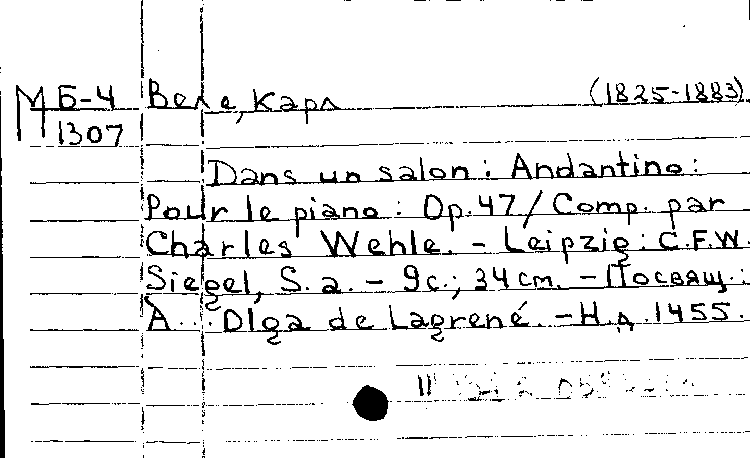 М Б-4 Веле, Карл (1825-1883)
1307
Dans un salon : Andantino :
Pour le piano : Op.47 / Comp. par
Charles Wehle. - Leipzig : C.F.W.
Siegel, S. a. - 9c.; 34 cm. - Посвящ.:
A... Olga de Lagrené. - Н.д. 1455.